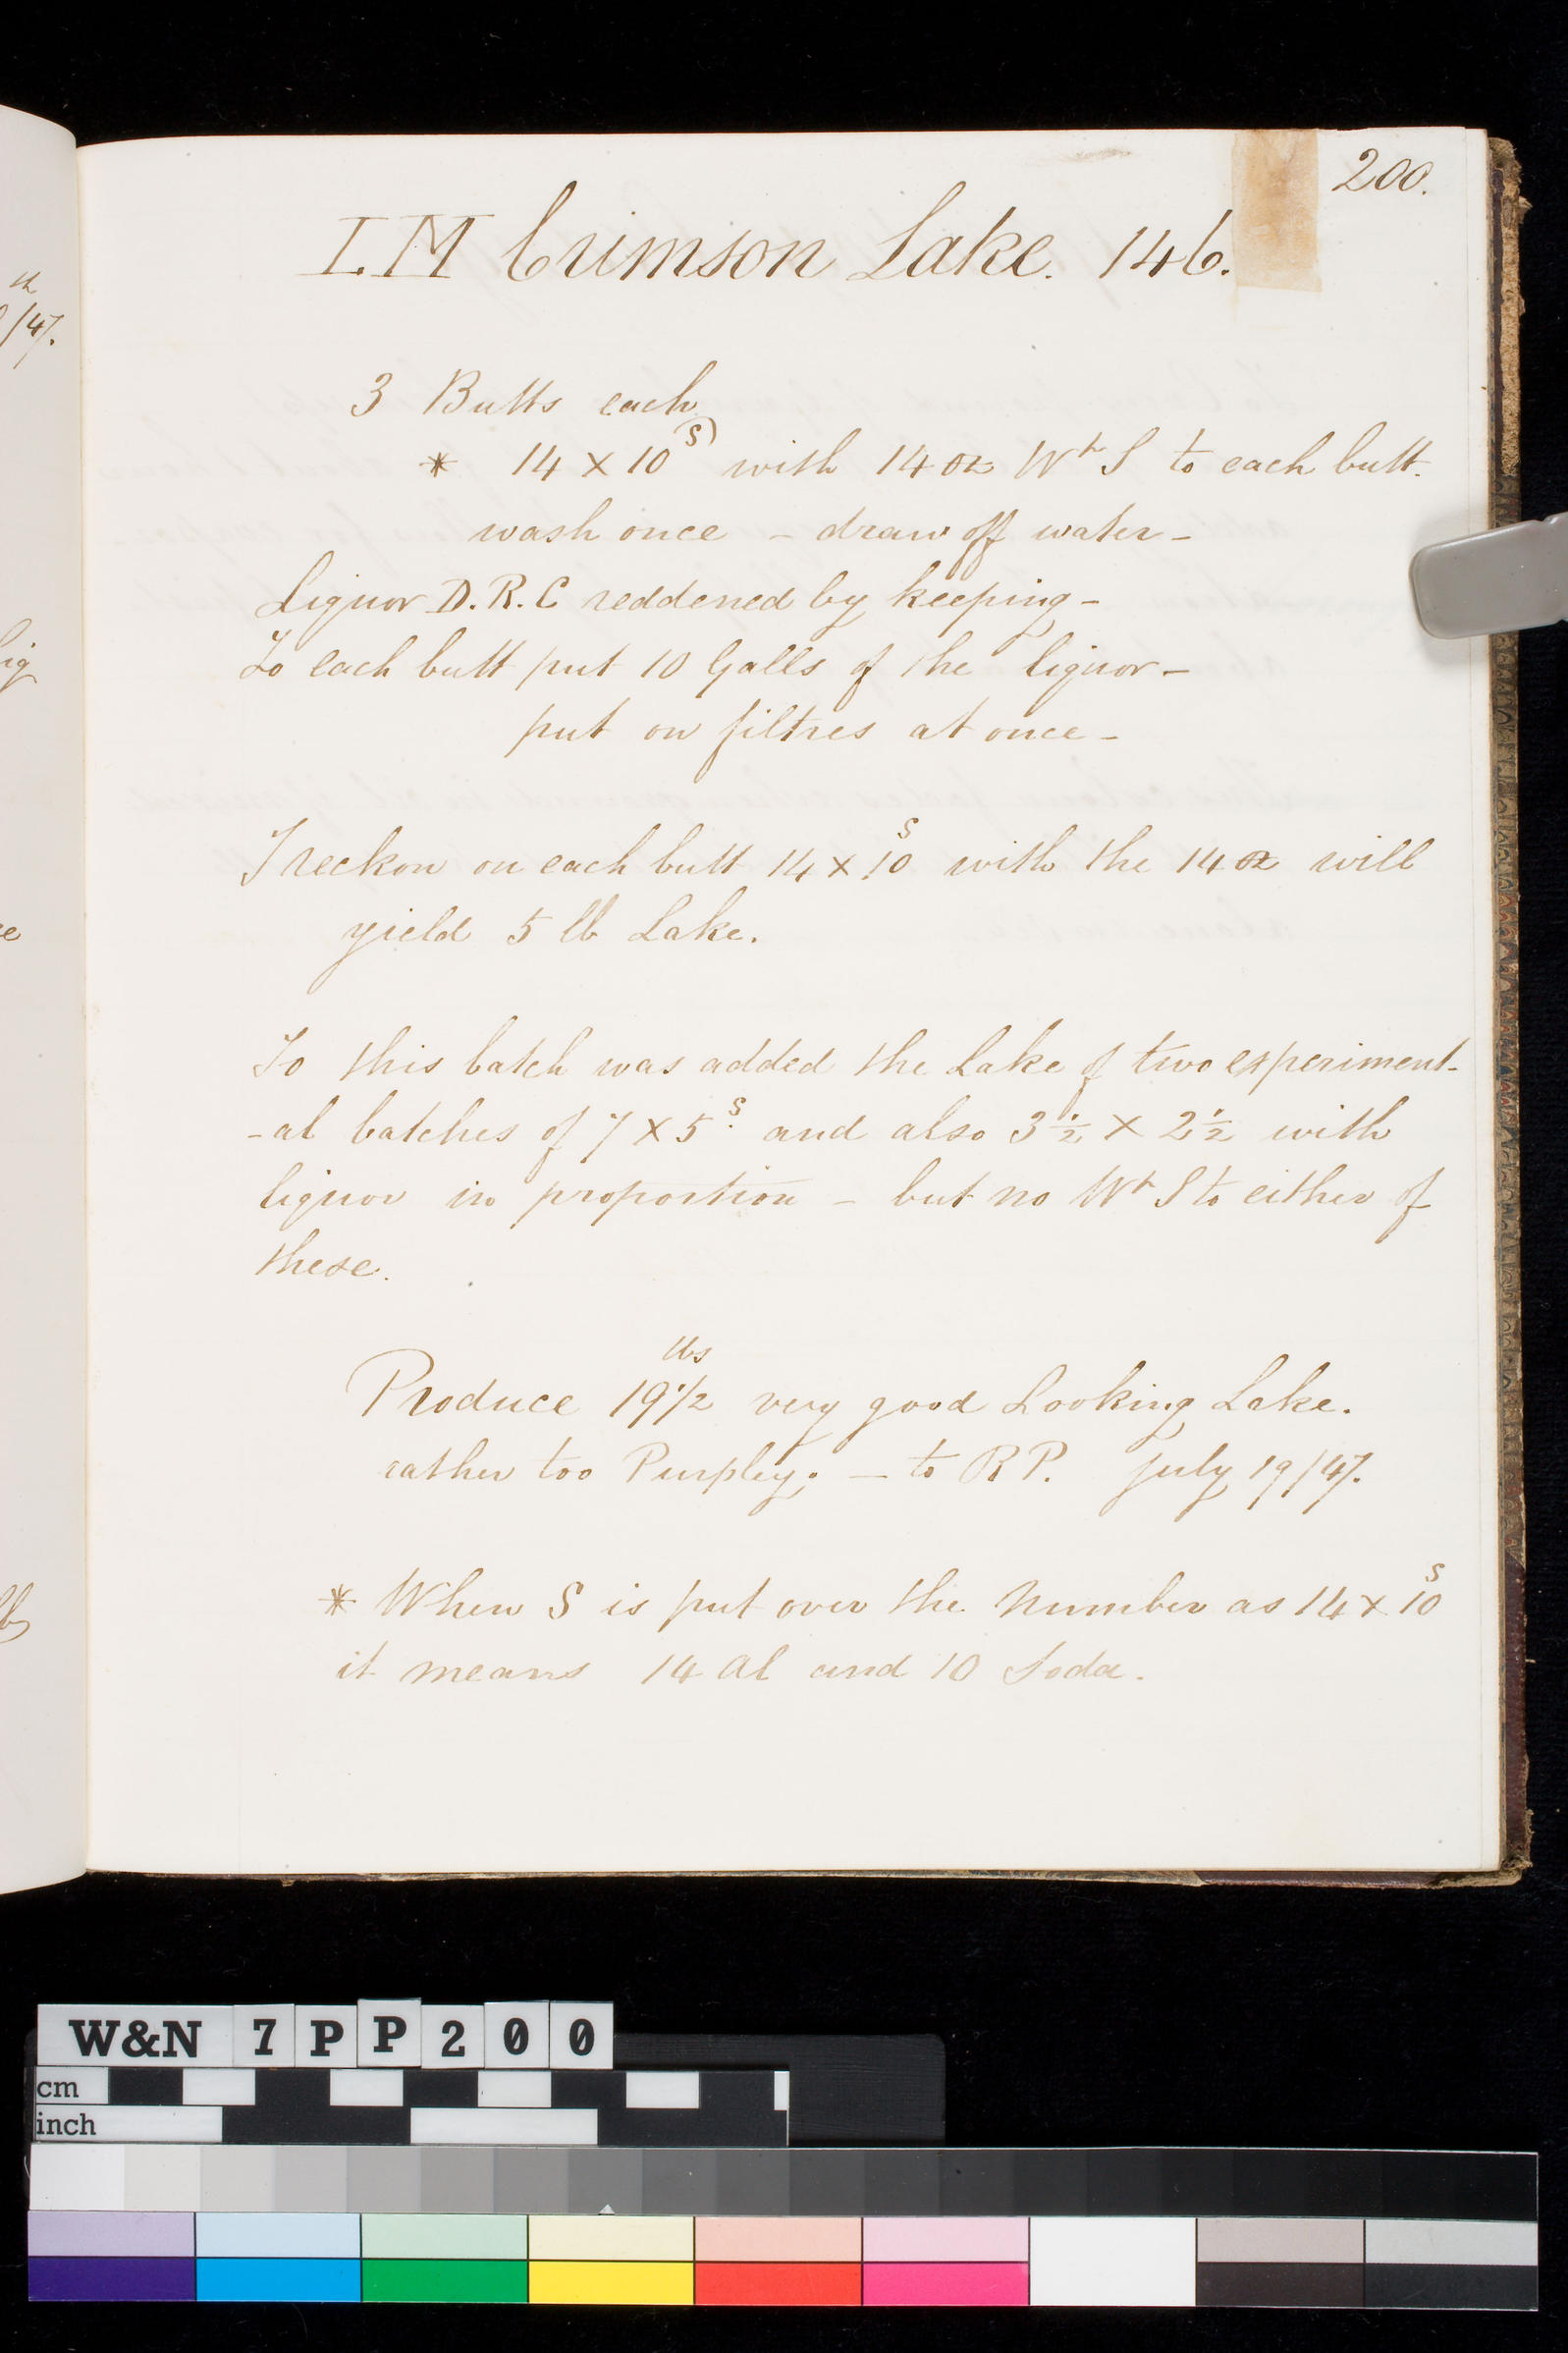 200.
I.M Crimson Lake. 146.
3 Butts each
* 14 X 10 S) with 14 oz Wt S to each butt.
wash once - draw off water -
Liquor D.R.C reddened by keeping -
To each butt put 10 Galls of the liquor -
put on filtres at once -
I reckon on each butt 14 x 10 S with the 14 oz will
yield 5 lb Lake.
To this batch was added the Lake of two experiment-
-al batches of 7 X 5 S. and also 3½ X 2½ with
liquor in proportion - but no Wt S to either of
these.
Produce 19½ lbs very good Looking Lake.
rather too Purpley. - to RP. July 19/47.
* When S is put over the Number as 14 x 10 S
it means 14 Al and 10 Soda.
th
/47.
lb
W&N 7PP200
cm
inch